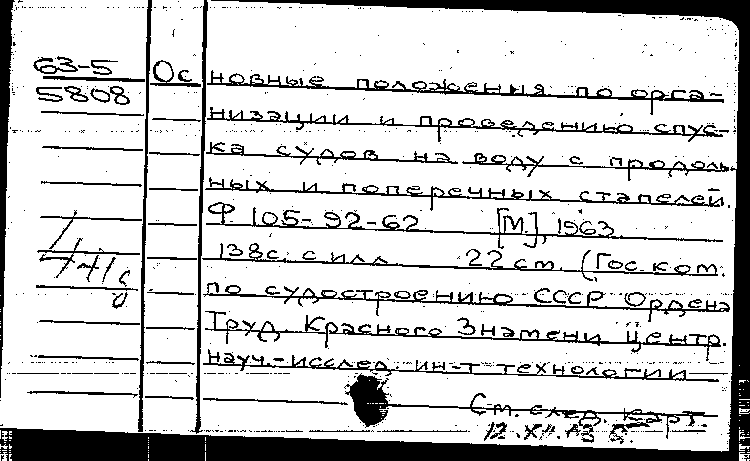 63-5 Ос новные положения по орга-
5808 низации и проведению спус-
ка судов на воду с продоль-
ных и поперечных стапелей.
Ф 105-92-62 [М.], 1963.
138с. с илл. 22 см. (Гос. ком.
по судостроению СССР Ордена
Труд. Красного Знамени Центр.
науч.-исслед. ин-т технологии
См. след. карт.
12.XII.63